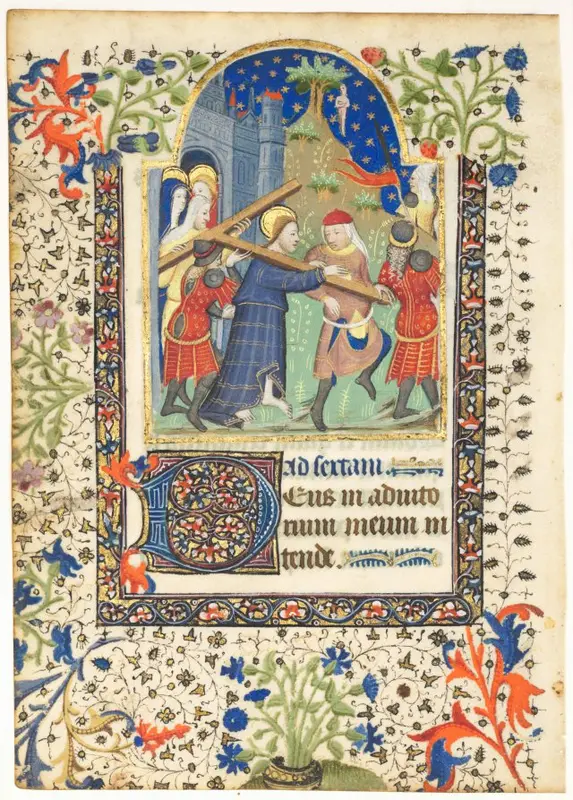 ad sextam.
Deus in adiuto
rium meum in
tende.